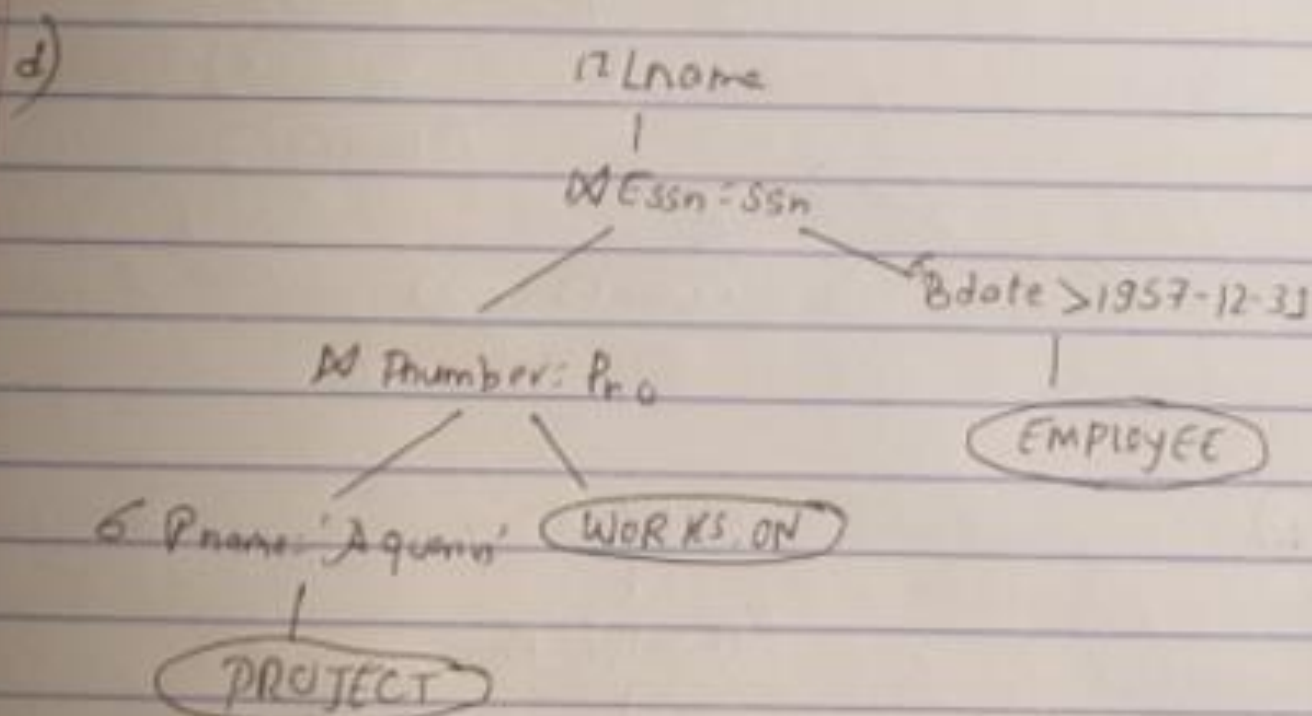 d)
π Lname
⋈ Essn = Ssn
σ Bdate > 1957-12-31
⋈ Pnumber = Pno
EMPLOYEE
σ Pname = 'Aquarius' WORKS_ON
PROJECT